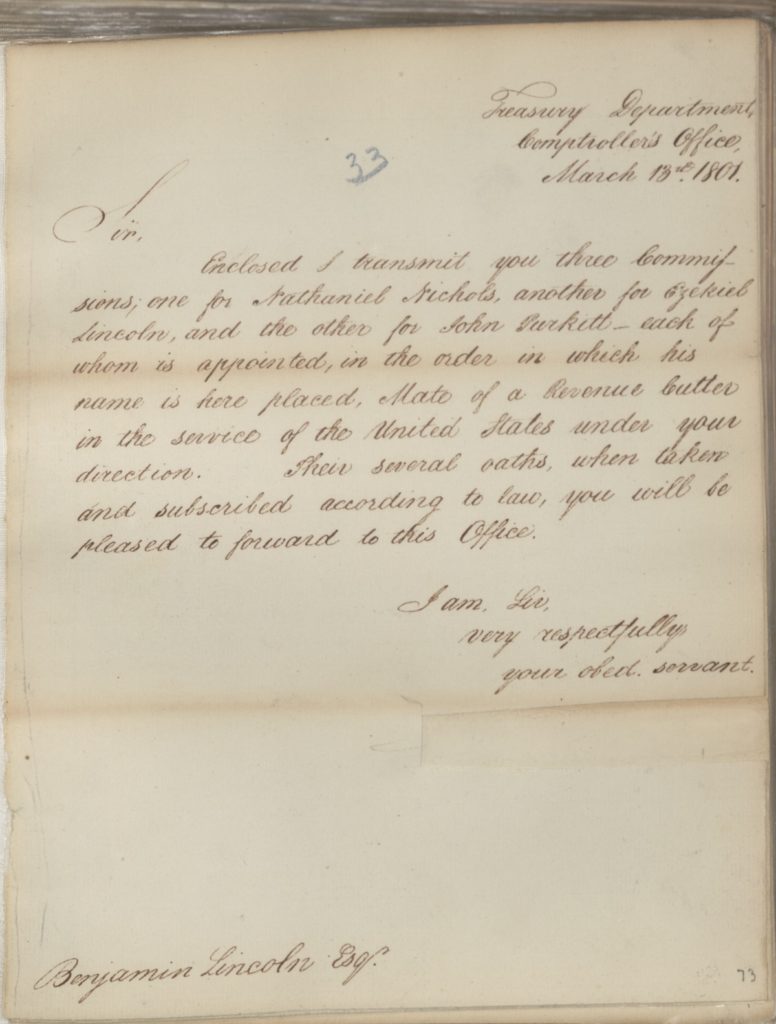 Treasury Department,
Comptroller's Office,
March 13th. 1801.
33
Sir,
Enclosed I transmit you three Commis-
sions; one for Nathaniel Nichols, another for Ezekiel
Lincoln, and the other for John Purkitt - each of
whom is appointed, in the order in which his
name is here placed, Mate of a Revenue Cutter
in the service of the United States under your
direction. Their several oaths, when taken
and subscribed according to law, you will be
pleased to forward to this Office.
I am, Sir,
very respectfully,
your obed. servant.
Benjamin Lincoln Esqr.
73